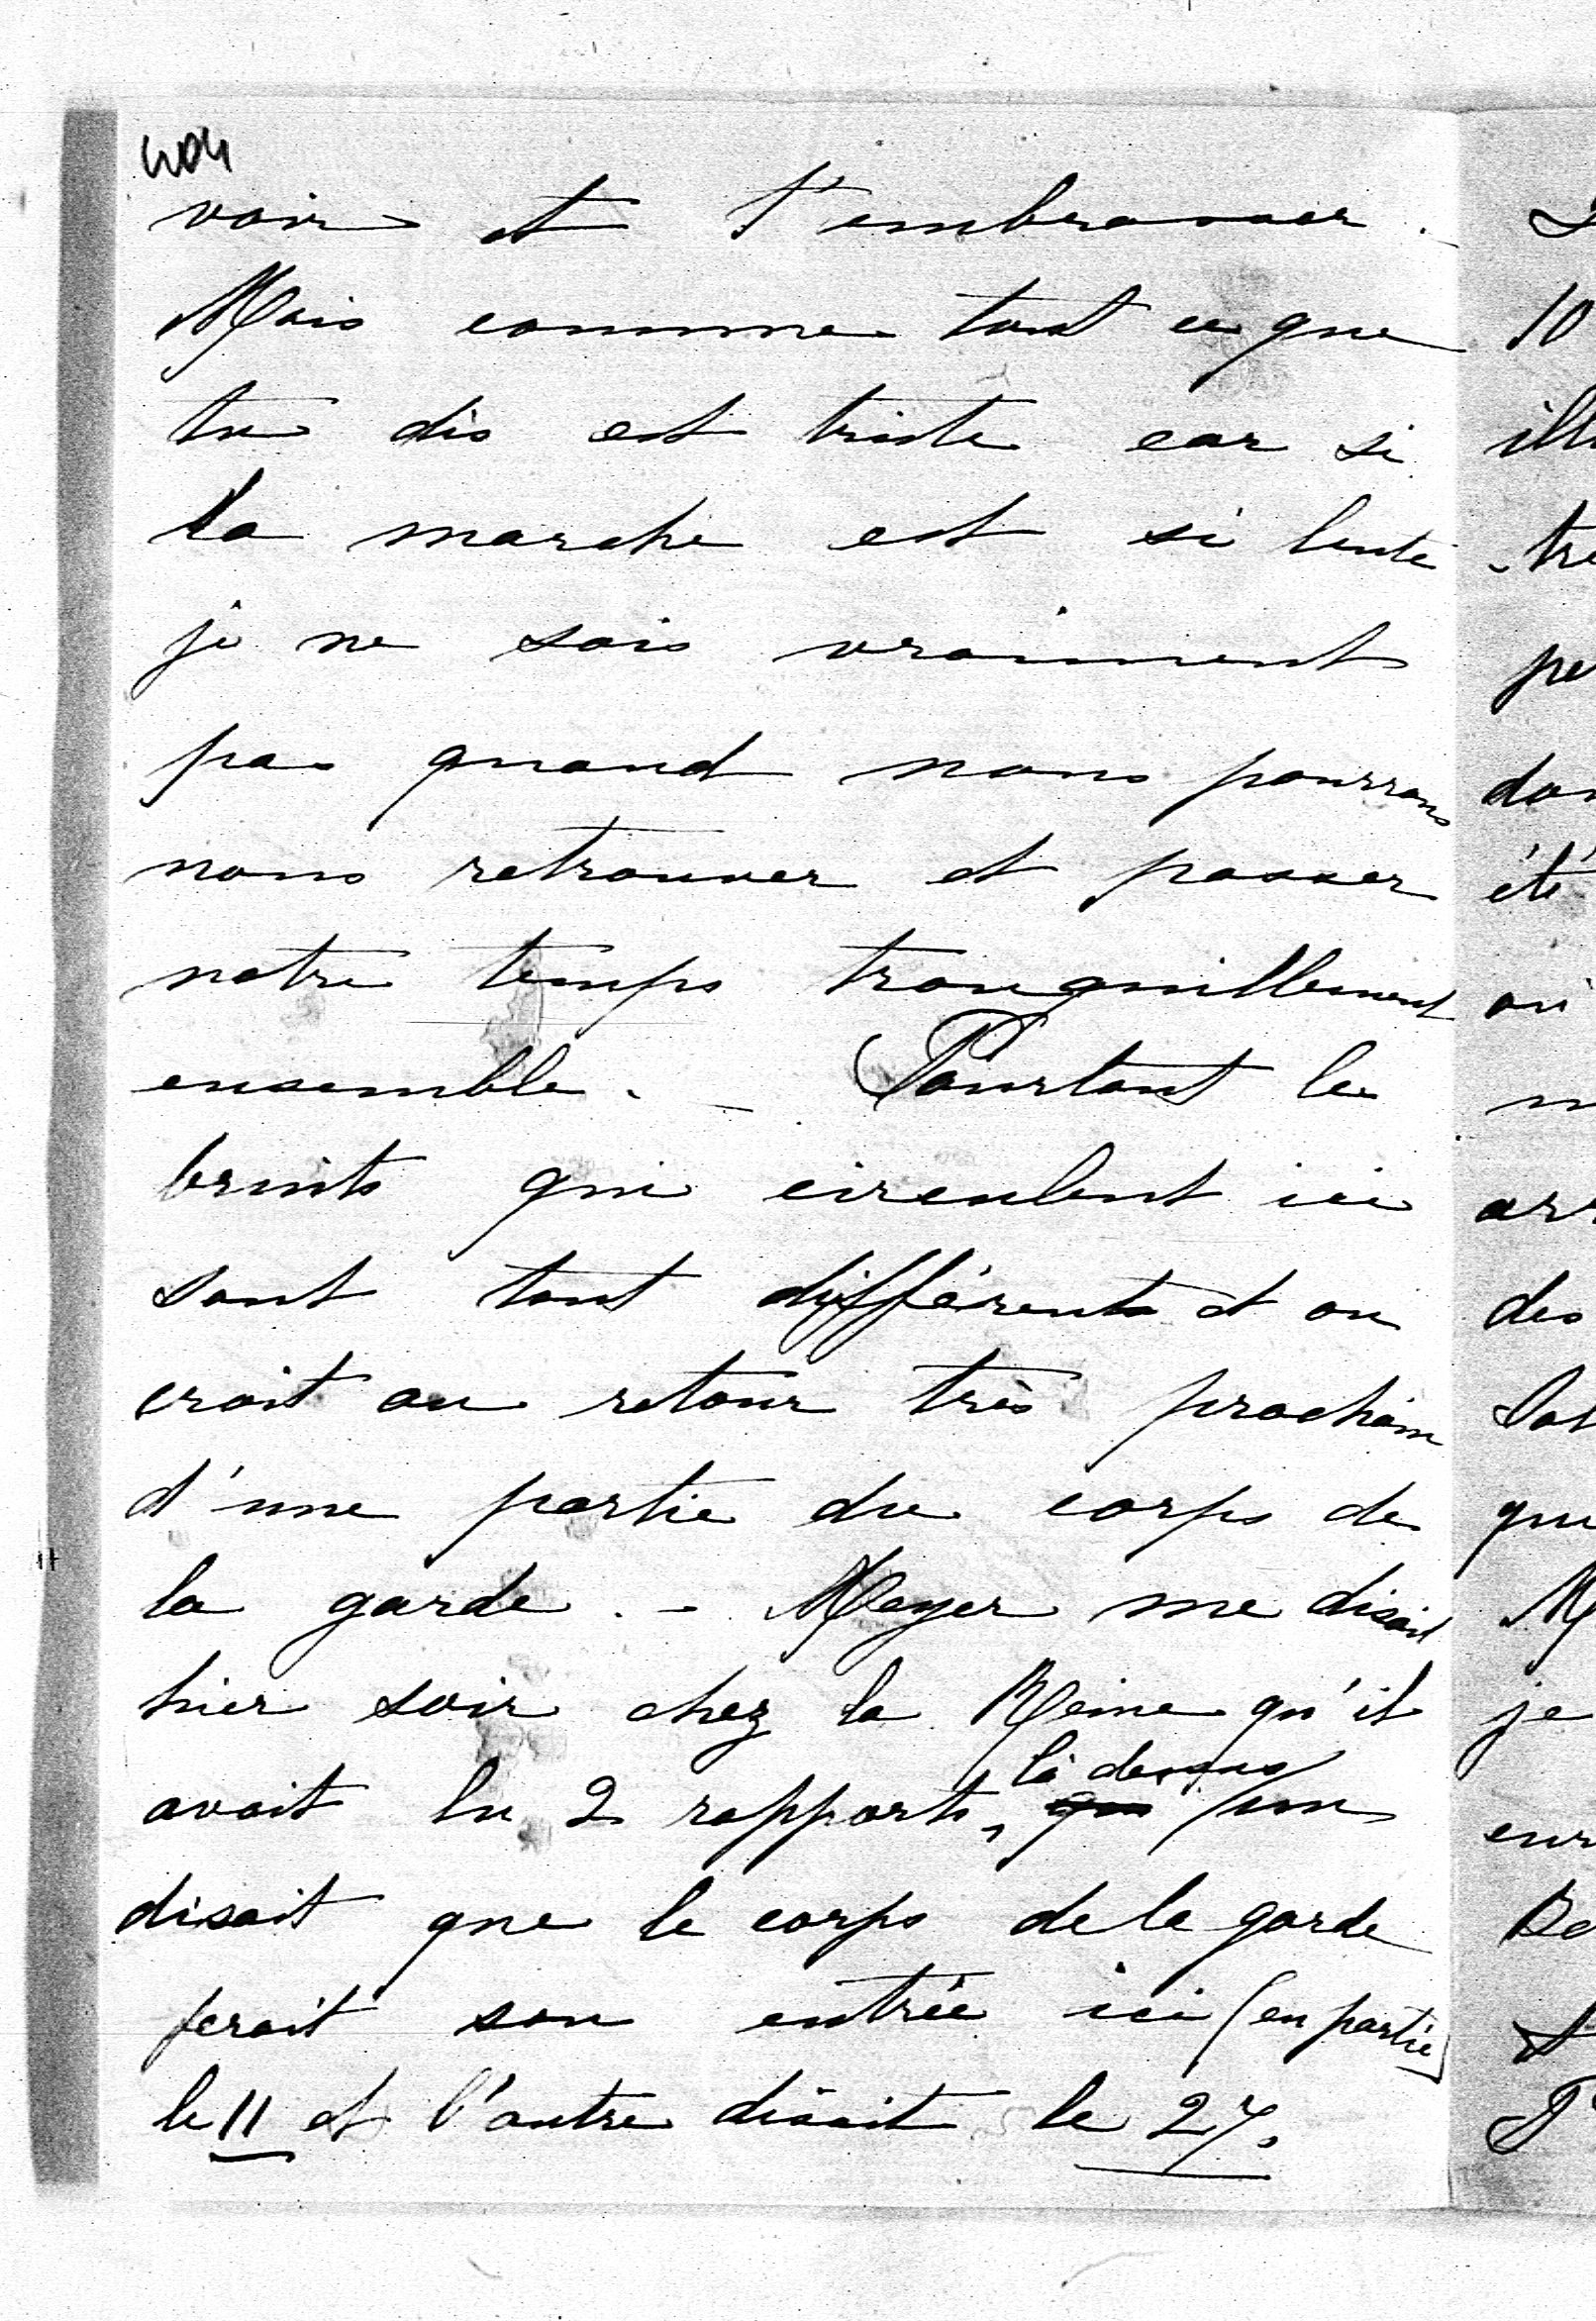 404
voir et t'embrasser.
Mais comme tout ce que
tu dis est triste car si
la marche est si lente
je ne sais vraiment
pas quand nous pourrons
nous retrouver et passer
notre temps tranquillement
ensemble. – Pourtant les
bruits qui circulent ici
sont tout différents et on
croit au retour très prochain
d'une partie du corps de
la garde. – Meyer me disait
hier soir chez la Reine qu'il
là dessus
avait lu 2 rapports, que l'un
disait que le corps de la garde
ferait son entrée ici (en partie)
le 11 et l'autre disait le 27.